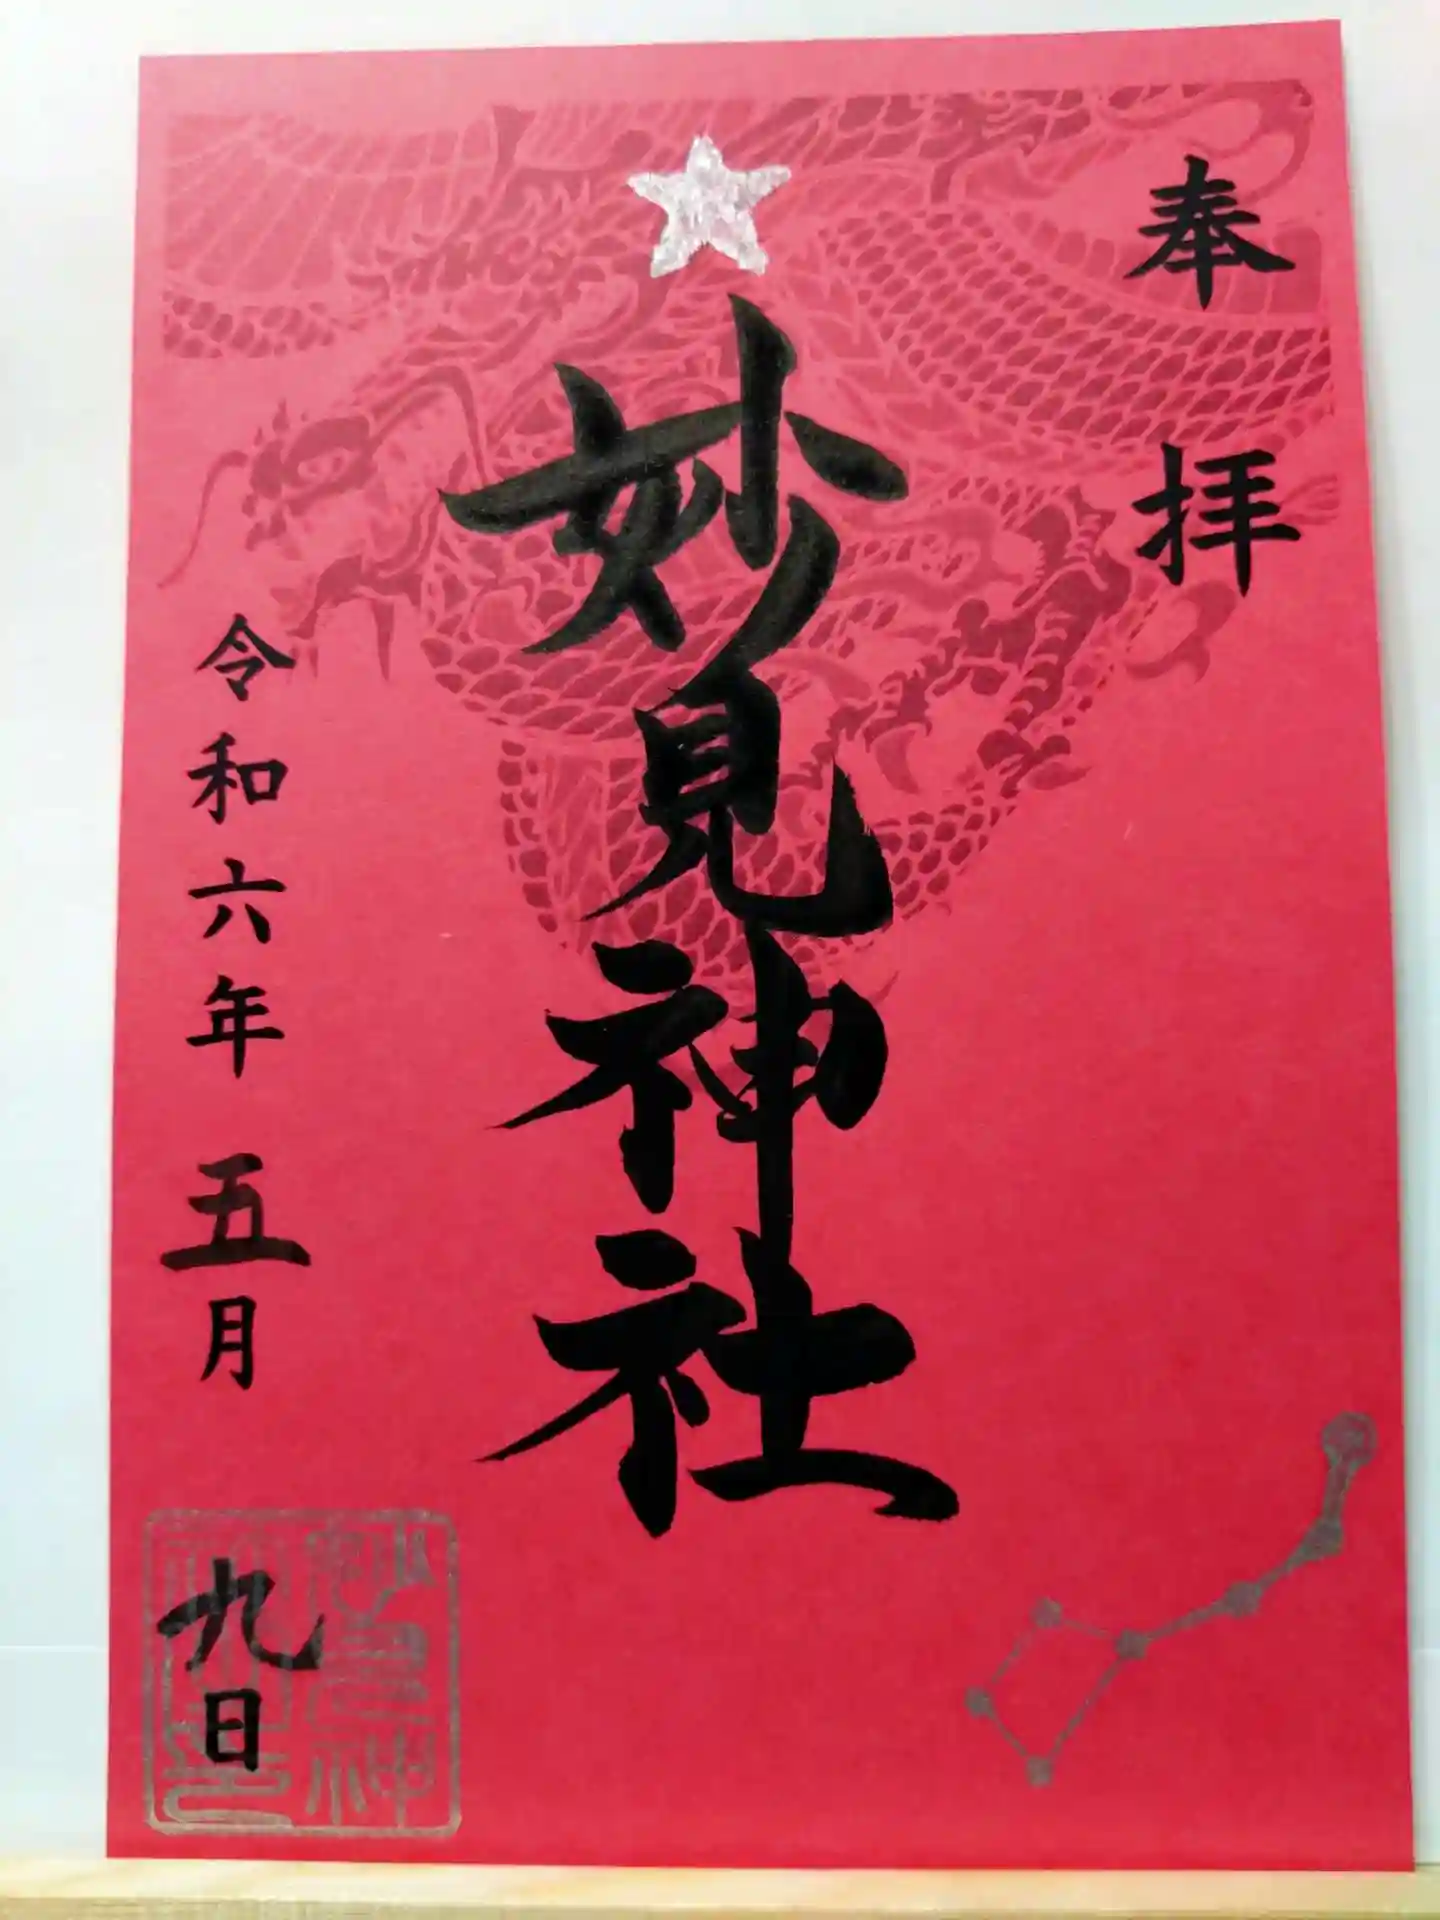 奉拝
妙見神社
令和六年五月九日